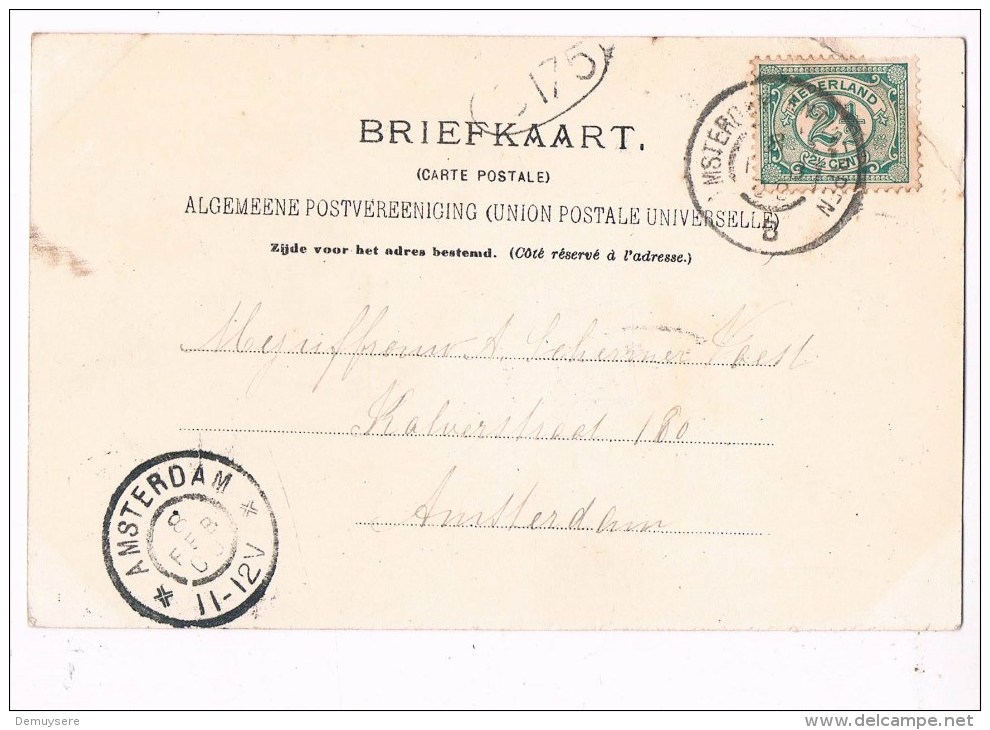 175
BRIEFKAART.
(CARTE POSTALE)
ALGEMEENE POSTVEREENIGING (UNION POSTALE UNIVERSELLE)
Zijde voor het adres bestemd. (Côté réservé à l'adresse.)
NEDERLAND
2½
2½ CENT
8
Mejuffrouw A. Schirmer Voest
Kalverstraat 180
Amsterdam
AMSTERDAM
8
FEB
11-12V
Demuysere
delcampe.net